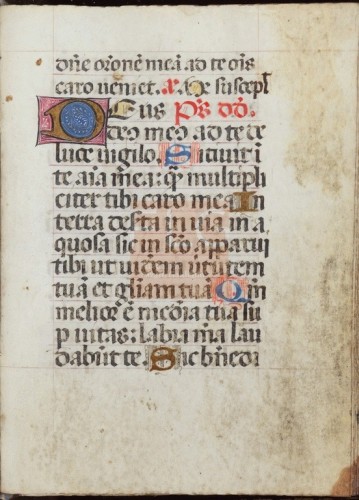 dñe oronẽ meã ad te oĩs
caro veniet. a. Me suscepĩ
Deus Ps dd.
deus meo ad te de
luce vigilo. Sitiuit ĩ
te aĩa mea: q̃ multipli
citer tibi caro mea In
terra deserta in uia in a
quosa sic in scõ apparui
tibi ut uiderem uirtutem
tuã et gliam tuã Qm̃
melior ẽ mĩcdia tua su
p uitas: labia mea lau
dabũt te. Sic bñedi